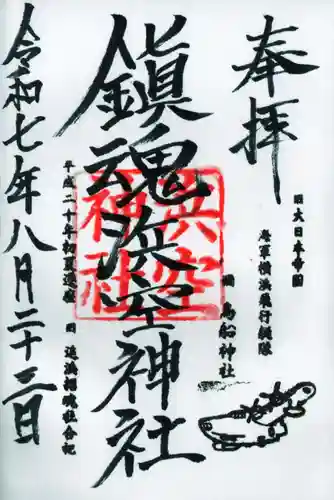 奉拝
旧大日本帝国
海軍横浜飛行銭隊
旧 鳥船神社
鎮魂浜空神社
浜空
神社
平成二十年初夏遷座
旧 追浜招魂社合祀
令和七年八月二十三日